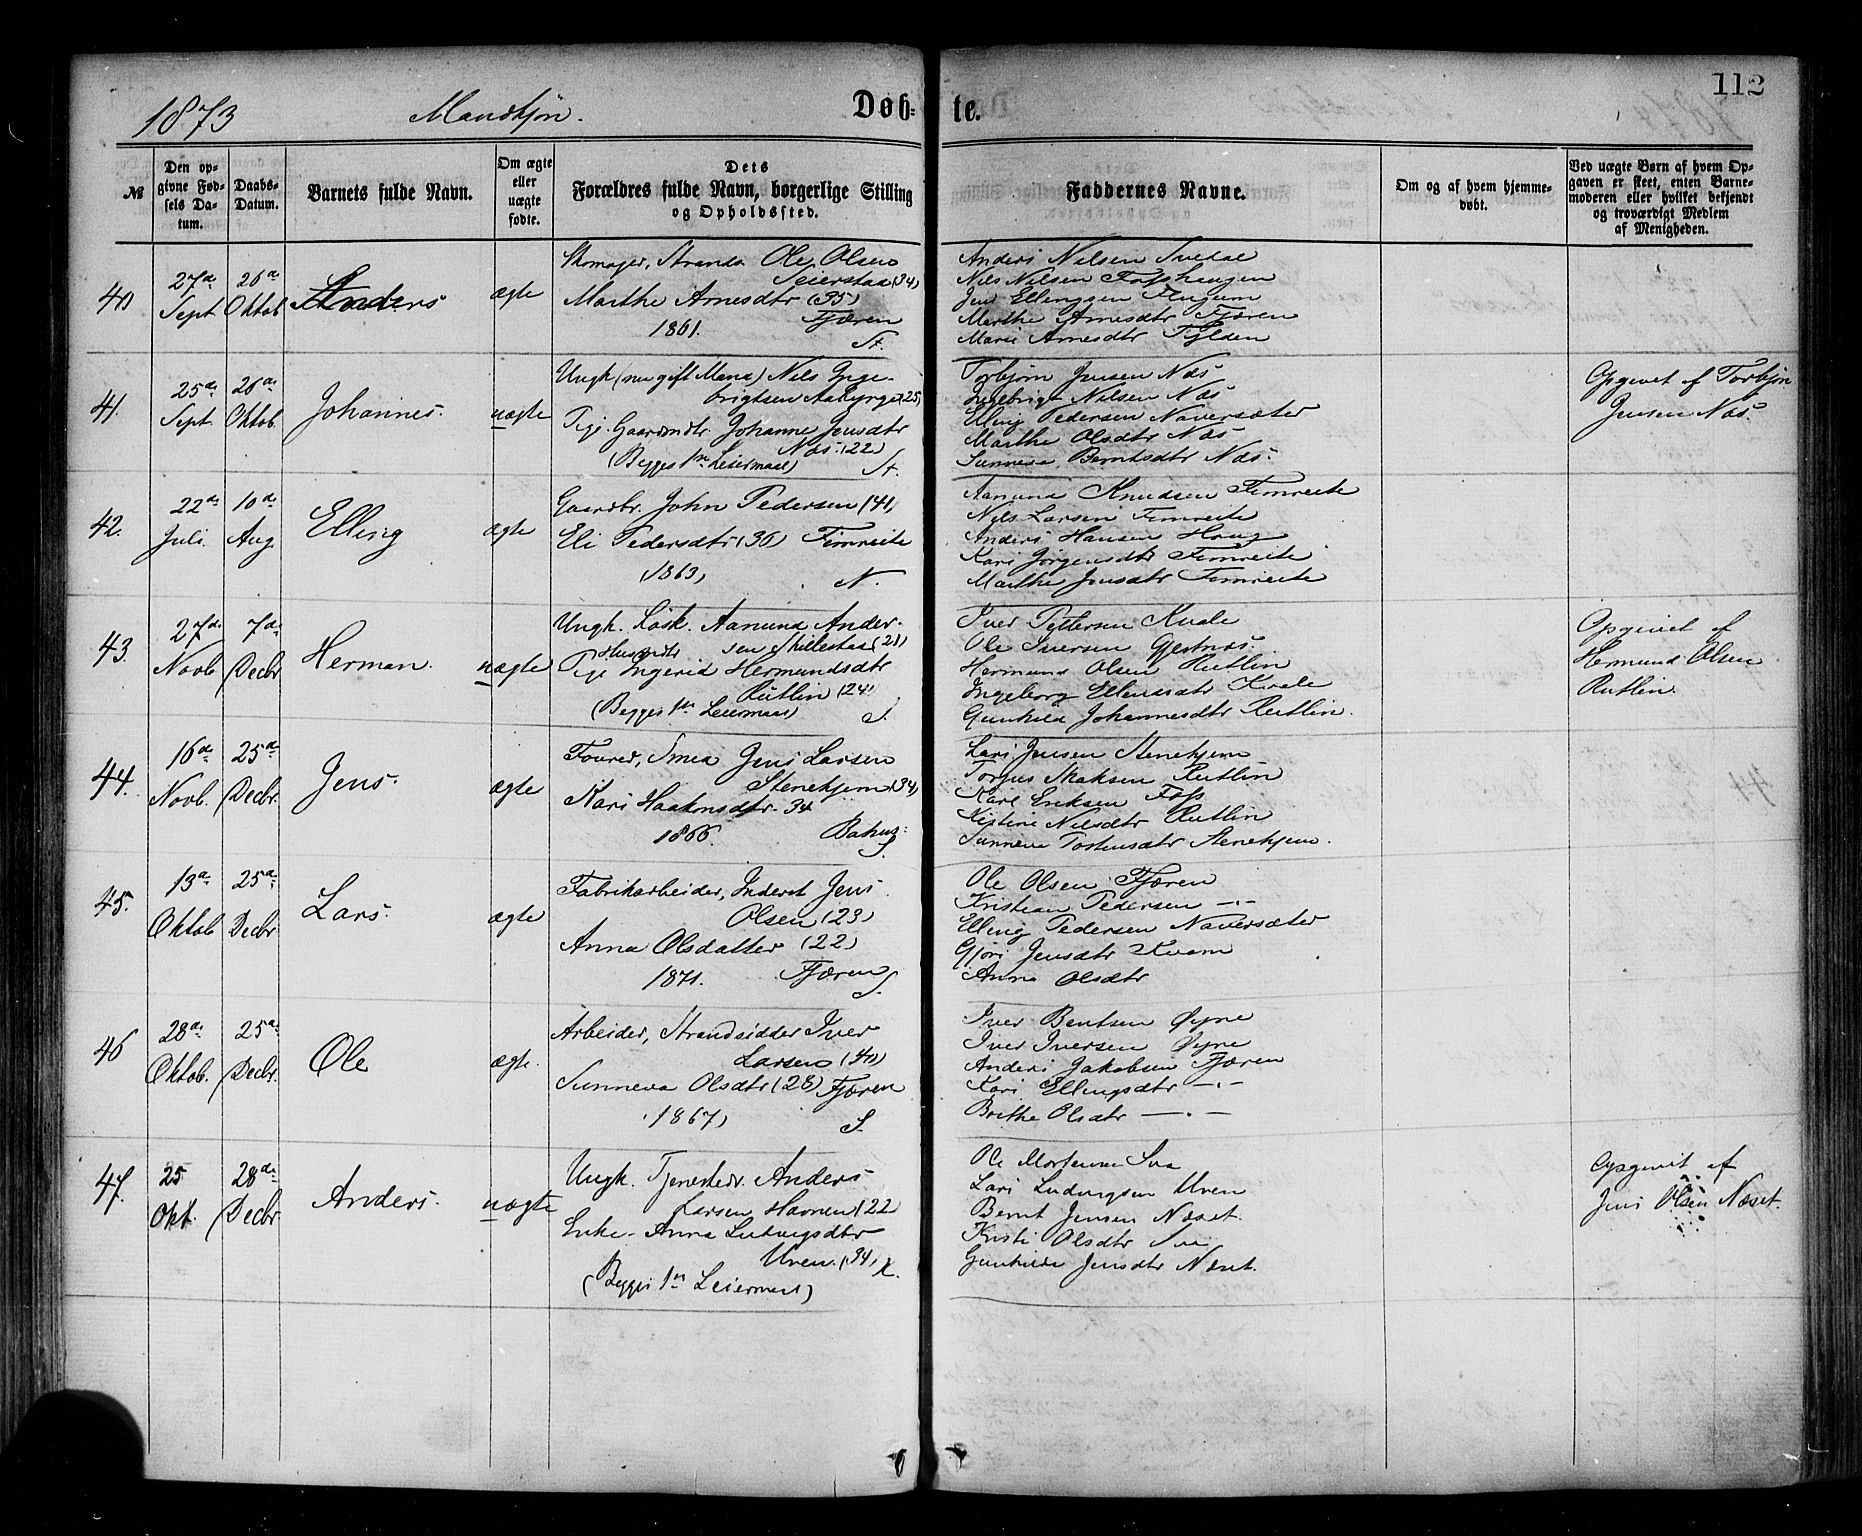 112
1873 Mandkjøn. Døb- te.
№
Den op-
givne Fød-
sels Da-
tum.
Daabs-
Datum.
Barnets fulde Navn.
Om ægte
eller
uægte
fødte.
Dets
Forældres fulde Navn, borgerlige Stilling
og Opholdssted.
Faddernes Navne.
Om og af hvem hjemme-
døbt.
Ved uægte Børn af hvem Op-
gaven er skeet, enten Barne-
moderen eller hvilket bekjendt
og troværdigt Medlem
af Menigheden.
40
27de
Sept
26de
Oktob
Anders
ægte
Skomager, Strands. Ole Olsen
Seierstad (34)
Marthe Arnesdtr (35)
1861. Fjæren
St.
Anders Nilsen Svedal
Nils Nilsen Fosshaugen
Jens Ellingsen Flugum
Marthe Arnesdtr Fjæren
Marie Arnesdtr Fylden
41.
25de
Sept.
26de
Oktob.
Johannes.
uægte
Ungk (nu gift Mand) Nils Inge-
brigtsen Aabyrge (25)
Pige. Gaardmdtr. Johanne Jensdtr
Næs. (22)
(Begges 1ste Leiermaal) St.
Torbjørn Jensen Næs
Ingebrigt Nilsen Næs
Elling Pedersen Naversæter
Marthe Olsdtr Næs
Sunneva Berntsdtr Næs.
Opgivet af Torbjørn
Jensen Næs.
42.
22de
Juli.
10de
Aug.
Elling
ægte
Gaardbr. John Pedersen (41)
Eli Pedersdtr (36) Fimreite
(1863) N.
Aamund Knudsen Fimreite
Nils Larsen Fimreite
Anders Hansen Haug
Kari Jørgensdtr Fimreite
Marthe Jensdtr Fimreite
43.
27de
Novb
7de
Decbr
Herman.
uægte
Ungk. Løsk. Aamund Ander-
sen Skillestad (21)
Husmdtr
Pige Ingerid Hermundsdtr
Rutlin (24)
(Begges 1ste Leiermaal) S.
Iver Pettersen Kvale
Ole Iversen Gjestnæs.
Hermund Olsen Rutlin
Ingeborg Ellendsdtr Kvale
Gunhild Johannesdtr Rutlin.
Opgivet af
Hermund Olsen
Rutlin.
44.
16de
Novb.
25de
Decbr.
Jens.
ægte
Foured, Smed Jens Larsen
Stenehjem (34)
Kari Haakonsdtr. 34
1866. S.
Lars Jensen Stenehjem
Torjus Isaksen Rutlin
Karl Eriksen Foss
Kistine Nilsdtr Rutlin
Sunneva Torstensdtr Stenehjem.
45.
13de
Oktob
25de
Decbr
Lars.
ægte
Fabrikarbeider, Inderst Jens
Olsen (23)
Anna Olsdatter (22)
1871. Fjæren S.
Ole Olsen Fjæren
Kristian Pedersen -"-
Elling Pedersen Naversæter
Gjøri Jensdtr Kvam
Anna Olsdtr
46
28de
Oktob.
25de
Decbr.
Ole
ægte.
Arbeider, Strandsidder Iver
Larsen (40)
Sunneva Olsdtr (28) Fjæren
(1867) S.
Iver Bentsen Øyne
Iver Iversen Øyne
Anders Jakobsen Fjæren
Kari Ellingsdtr -"-
Brithe Olsdtr -"-
47.
25
Okt.
28de
Decbr
Anders.
uægte
Ungk. Tjenestedr. Anders
Larsen Havnen (22)
Enke. Anna Ludvigsdtr
Uren. (34)
(Begges 1ste Leiermaal)
Ole Mortensen Sva
Lars Ludvigsen Uren
Bernt Jensen Næset.
Kristi Olsdtr Sva
Gunhilde Jensdtr Næset.
Opgivit af
Jens Olsen Næset.